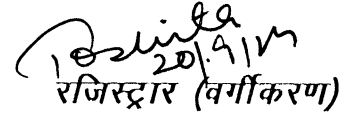 20/9/
रजिस्ट्रार (वर्गीकरण)